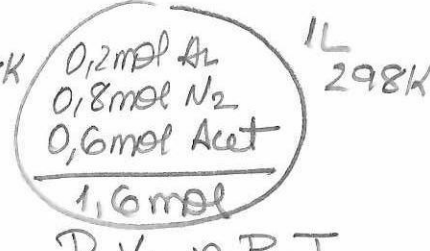 0,2mol Ar
0,8mol N2
0,6mol Acet
1,6mol
1L
298K
K
P.V = n.R.T